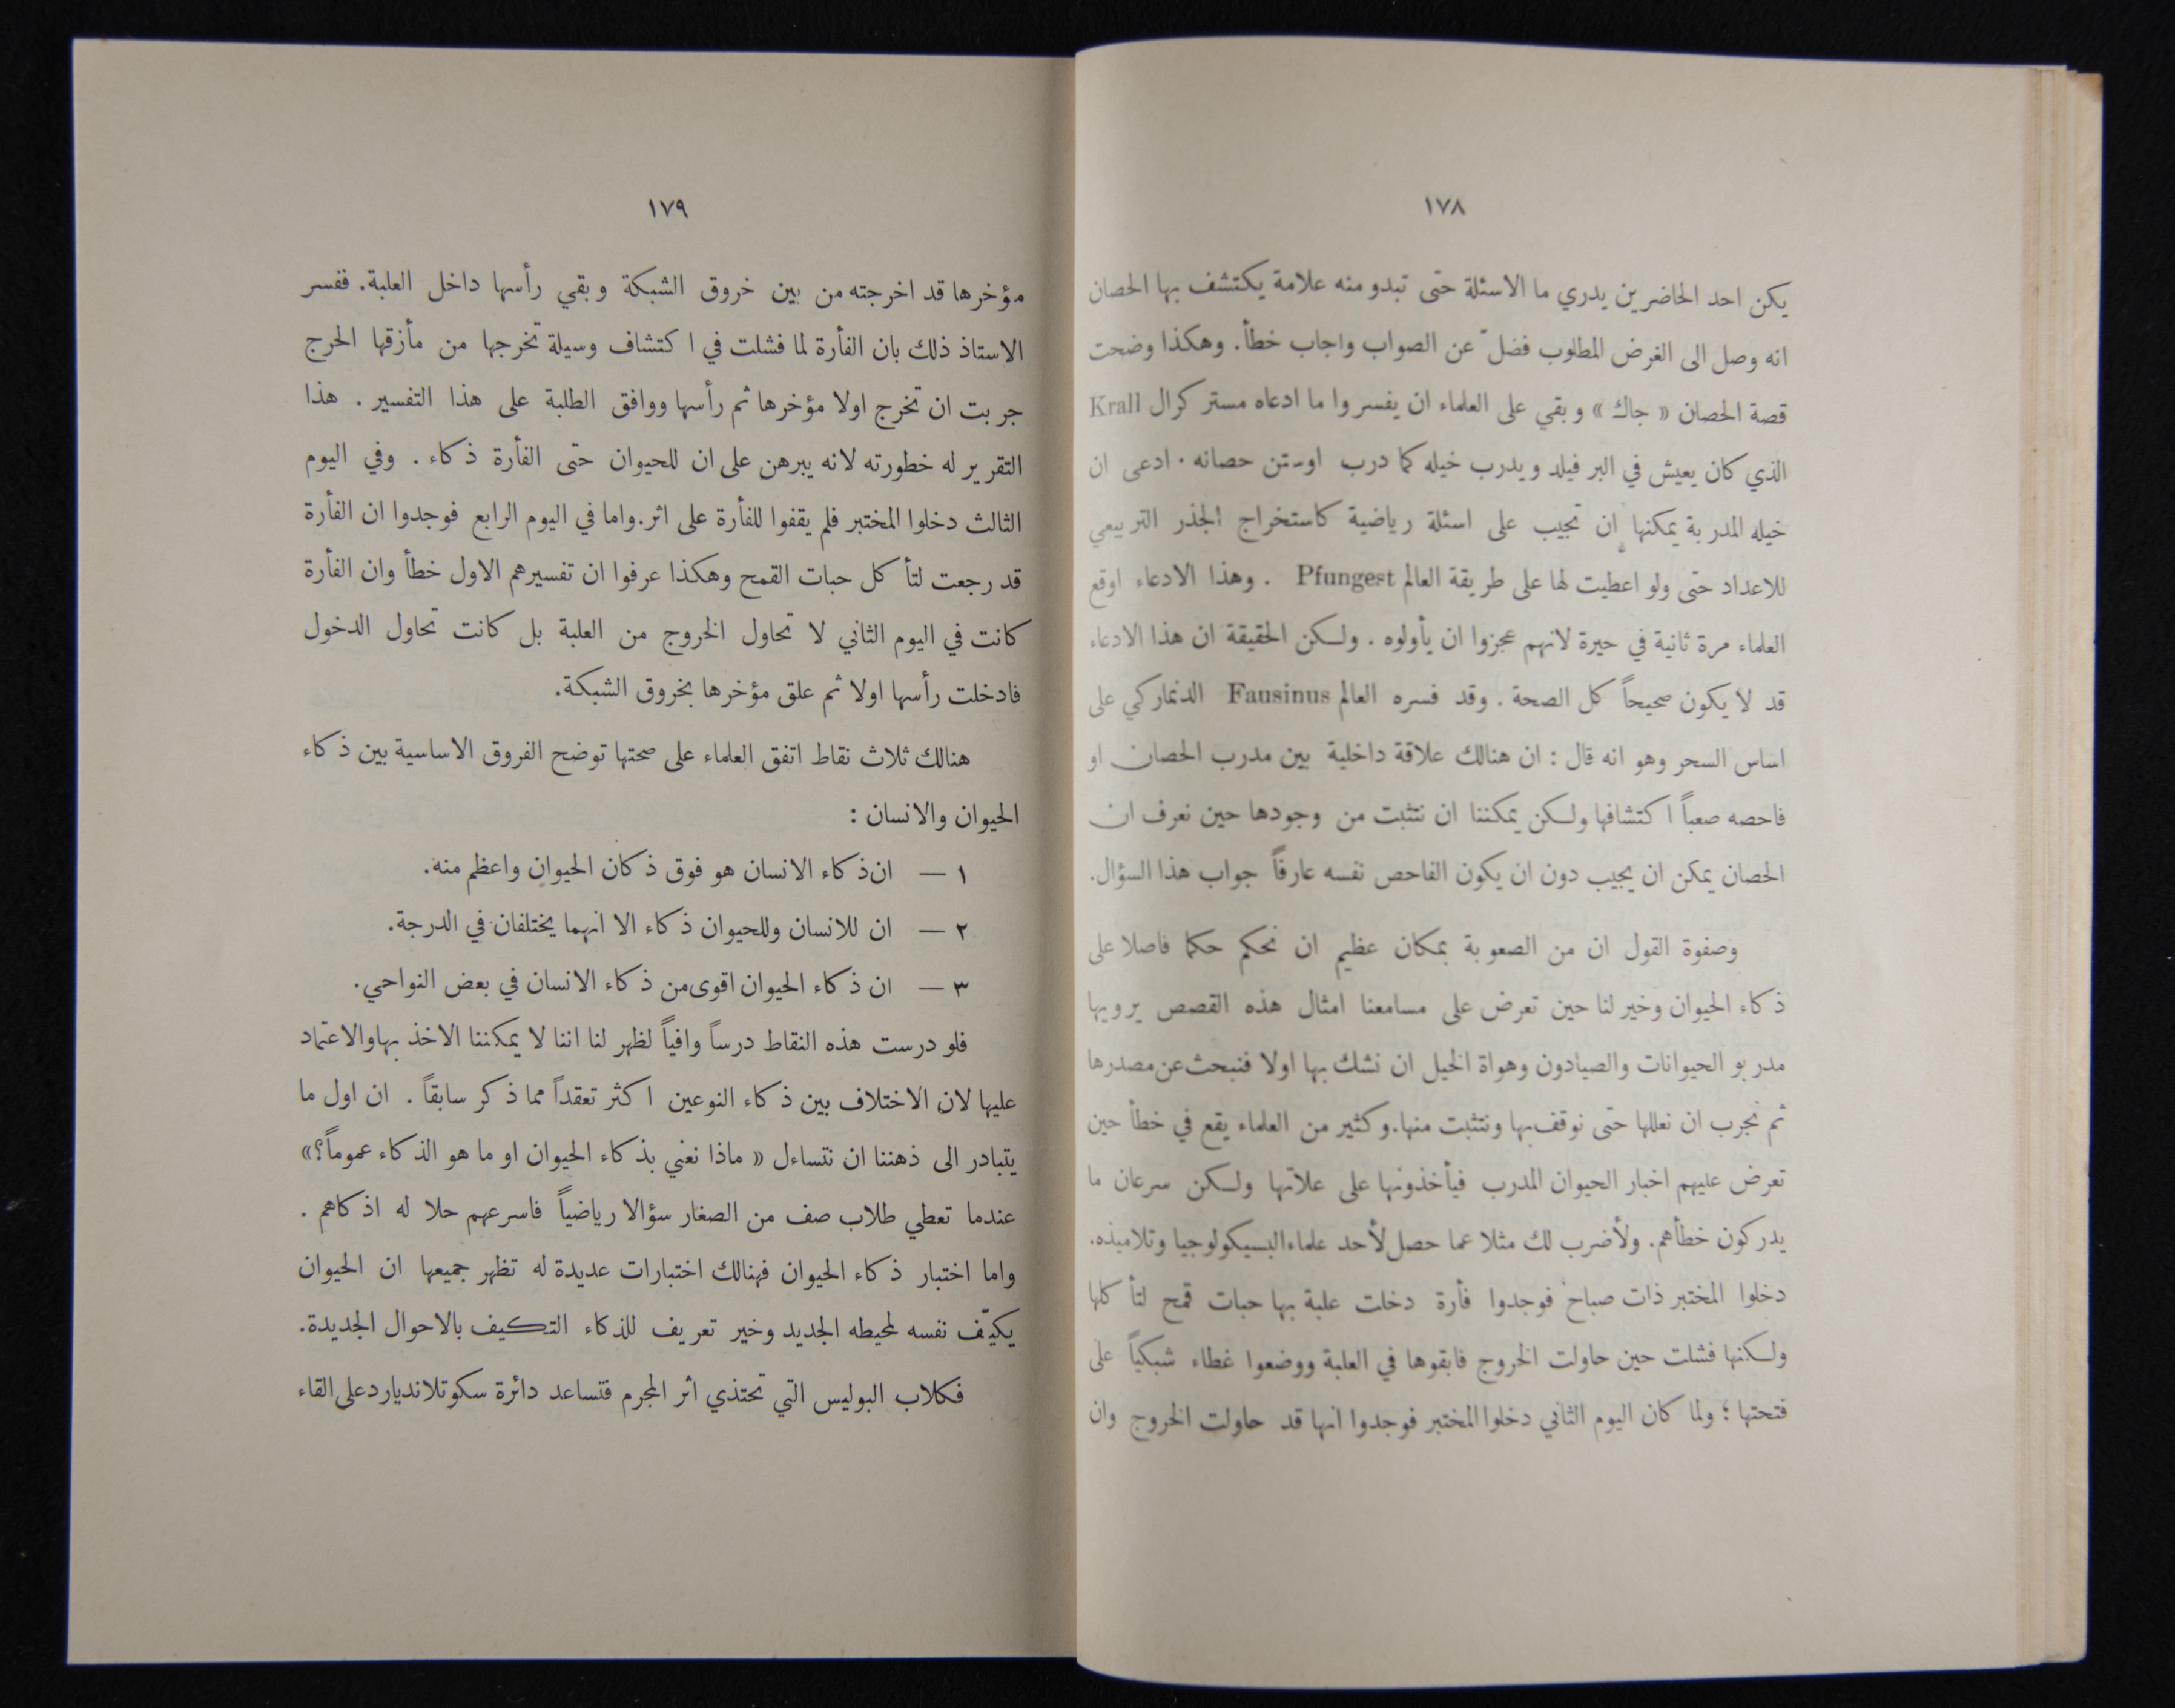 ١٧٨
يكن احد الحاضرين يدري ما الاسئلة حتى تبدو منه علامة يكتشف بها الحصان
انه وصل الى الغرض المطلوب فضلّ عن الصواب واجاب خطأ. وهكذا وضحت
قصة الحصان « جاك » وبقي على العلماء ان يفسروا ما ادعاه مستر كرال Krall
الذي كان يعيش في البر فيلد ويدرب خيله كما درب اوستن حصانه . ادعى ان
خيله المدربة يمكنها ان تجيب على اسئلة رياضية كاستخراج الجذر التربيعي
للاعداد حتى ولو اعطيت لها على طريقة العالم Pfungest . وهذا الادعاء اوقع
العلماء مرة ثانية في حيرة لانهم عجزوا ان يأولوه . ولكن الحقيقة ان هذا الادعاء
قد لا يكون صحيحاً كل الصحة . وقد فسره العالم Fausinus الدنماركي على
اساس السحر وهو انه قال : ان هنالك علاقة داخلية بين مدرب الحصان او
فاحصه صعباً اكتشافها ولكن يمكننا ان نتثبت من وجودها حين نعرف ان
الحصان يمكن ان يجيب دون ان يكون الفاحص نفسه عارفاً جواب هذا السؤال.
وصفوة القول ان من الصعوبة بمكان عظيم ان نحكم حكما فاصلا على
ذكاء الحيوان وخير لنا حين تعرض على مسامعنا امثال هذه القصص يرويها
مدربو الحيوانات والصيادون وهواة الخيل ان نشك بها اولا فنبحث عن مصدرها
ثم نجرب ان نعللها حتى نوقف بها ونتثبت منها. وكثير من العلماء يقع في خطأ حين
تعرض عليهم اخبار الحيوان المدرب فيأخذونها على علاتها ولكن سرعان ما
يدركون خطأهم. ولأضرب لك مثلا عما حصل لأحد علماء البسيكولوجيا وتلاميذه.
دخلوا المختبر ذات صباح فوجدوا فأرة دخلت علبة بها حبات قمح لتأكلها
ولكنها فشلت حين حاولت الخروج فابقوها في العلبة ووضعوا غطاء شبكياً على
فتحتها ؛ ولما كان اليوم الثاني دخلوا المختبر فوجدوا انها قد حاولت الخروج وان
١٧٩
مؤخرها قد اخرجته من بين خروق الشبكة وبقي رأسها داخل العلبة. ففسر
الاستاذ ذلك بان الفأرة لما فشلت في اكتشاف وسيلة تخرجها من مأزقها الحرج
جربت ان تخرج اولا مؤخرها ثم رأسها ووافق الطلبة على هذا التفسير . هذا
التقرير له خطورته لانه يبرهن على ان للحيوان حتى الفأرة ذكاء . وفي اليوم
الثالث دخلوا المختبر فلم يقفوا للفأرة على اثر. واما في اليوم الرابع فوجدوا ان الفأرة
قد رجعت لتأكل حبات القمح وهكذا عرفوا ان تفسيرهم الاول خطأ وان الفأرة
كانت في اليوم الثاني لا تحاول الخروج من العلبة بل كانت تحاول الدخول
فادخلت رأسها اولا ثم علق مؤخرها بخروق الشبكة.
هنالك ثلاث نقاط اتفق العلماء على صحتها توضح الفروق الاساسية بين ذكاء
الحيوان والانسان :
١ — ان ذكاء الانسان هو فوق ذكان الحيوان واعظم منه.
٢ — ان للانسان وللحيوان ذكاء الا انهما يختلفان في الدرجة.
٣ — ان ذكاء الحيوان اقوى من ذكاء الانسان في بعض النواحي.
فلو درست هذه النقاط درساً وافياً لظهر لنا اننا لا يمكننا الاخذ بها والاعتماد
عليها لان الاختلاف بين ذكاء النوعين اكثر تعقداً مما ذكر سابقاً . ان اول ما
يتبادر الى ذهننا ان نتساءل « ماذا نعني بذكاء الحيوان او ما هو الذكاء عموماً؟»
عندما تعطي طلاب صف من الصغار سؤالا رياضياً فاسرعهم حلا له اذكاهم .
واما اختبار ذكاء الحيوان فهنالك اختبارات عديدة له تظهر جميعها ان الحيوان
يكيّف نفسه لمحيطه الجديد وخير تعريف للذكاء التكيف بالاحوال الجديدة.
فكلاب البوليس التي تحتذي اثر المجرم فتساعد دائرة سكوتلانديارد على القاء